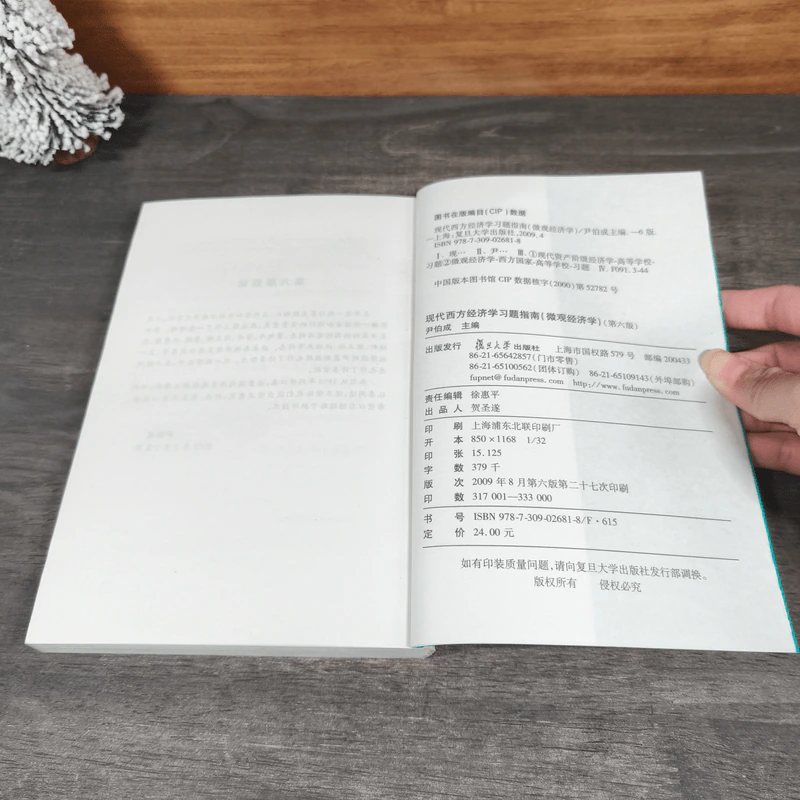 图书在版编目(CIP)数据
现代西方经济学习题指南(微观经济学)/尹伯成主编.—6版.
—上海:复旦大学出版社,2009.4
ISBN 978-7-309-02681-8
Ⅰ.现… Ⅱ.尹… Ⅲ.①现代资产阶级经济学-高等学校-
习题②微观经济学-西方国家-高等学校-习题 Ⅳ.F091.3-44
中国版本图书馆CIP数据核字(2000)第52782号
现代西方经济学习题指南(微观经济学)(第六版)
尹伯成 主编
出版发行 复旦大学出版社 上海市国权路579号 邮编200433
86-21-65642857(门市零售)
86-21-65100562(团体订购) 86-21-65109143(外埠邮购)
fupnet@fudanpress.com http://www.fudanpress.com
责任编辑 徐惠平
出品人 贺圣遂
印刷 上海浦东北联印刷厂
开本 850×1168 1/32
印张 15.125
字数 379千
版次 2009年8月第六版第二十七次印刷
印数 317 001—333 000
书号 ISBN 978-7-309-02681-8/F·615
定价 24.00元
如有印装质量问题,请向复旦大学出版社发行部调换。
版权所有 侵权必究